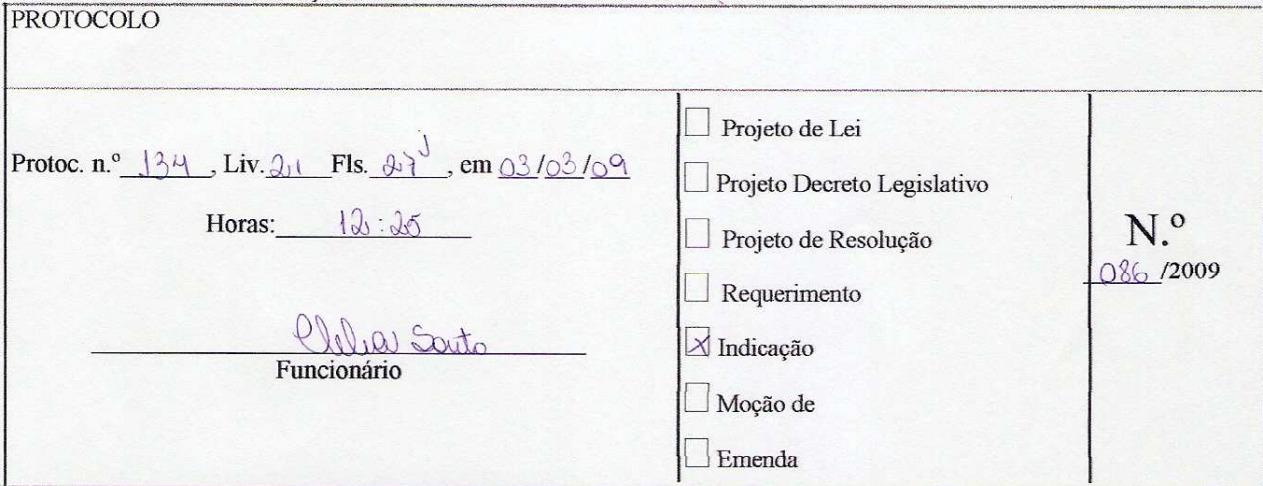 PROTOCOLO
Protoc. n.º 134, Liv. 21 Fls. 27, em 03/03/09
Horas: 12:25
Souto
Funcionário
Projeto de Lei
Projeto Decreto Legislativo
Projeto de Resolução
Requerimento
X Indicação
Moção de
Emenda
N.º
086/2009